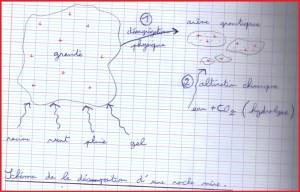 ①
désagrégation
physique
arène granitique
granite
② altération chimique
eau + CO2 (hydrolyse)
racine vent pluie gel
Schéma de la décomposition d'une roche mère.